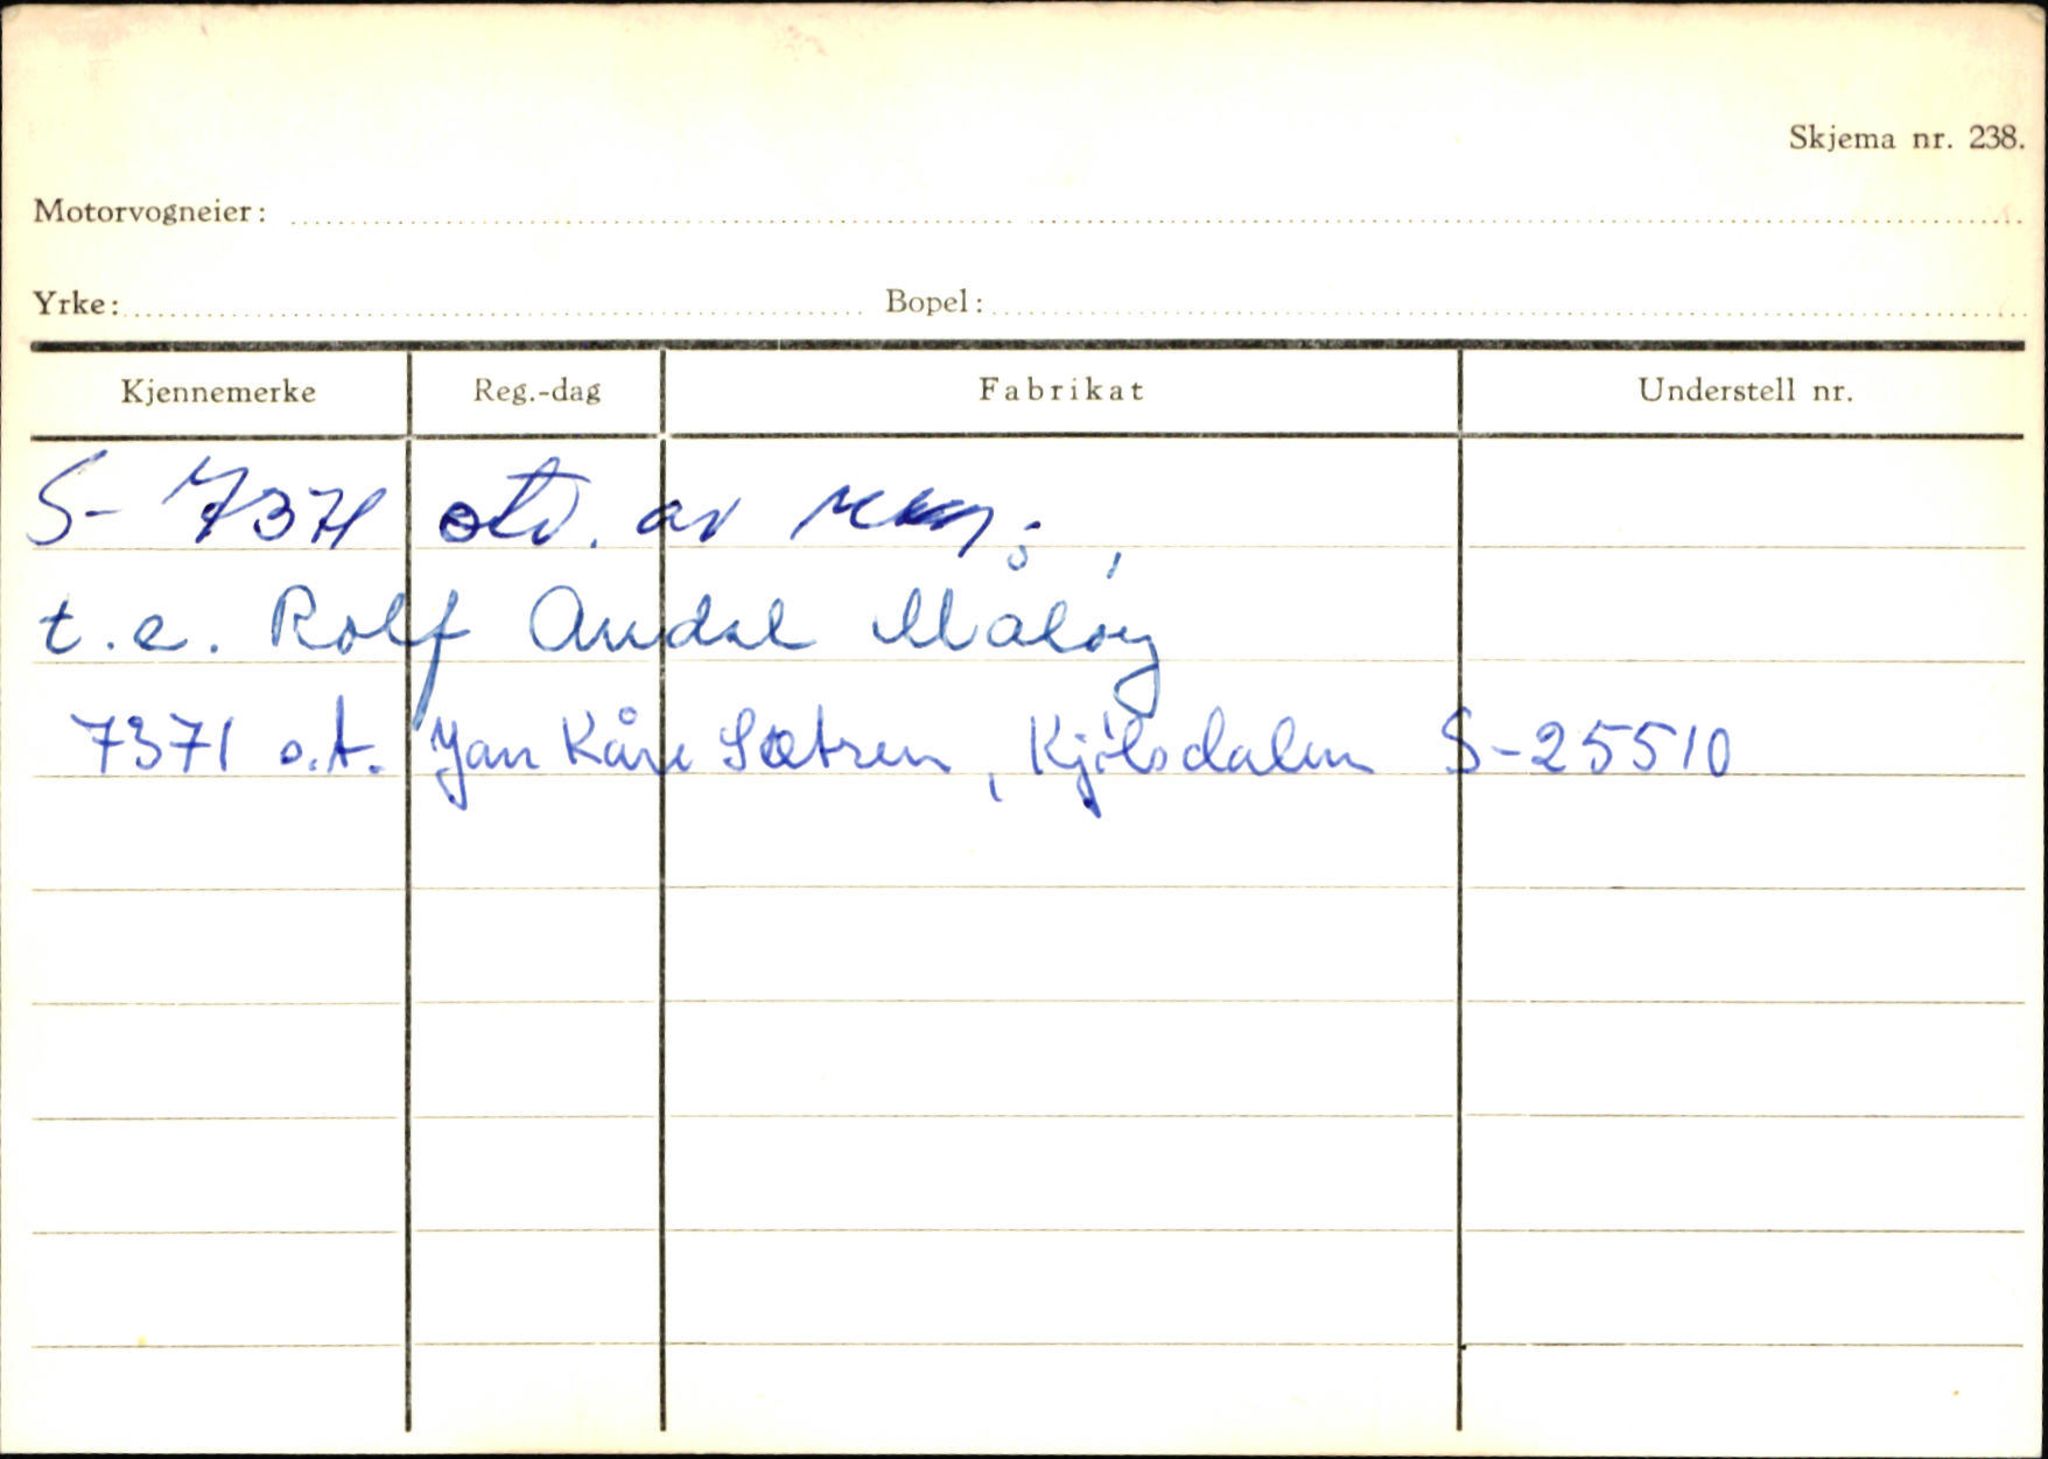 Skjema nr. 238.
Motorvogneier:
Yrke: Bopel:
Kjennemerke Reg.-dag Fabrikat Understell nr.
S- 7371 av
t.e. Rolf Audal Måløy
7371 o.t. Jan Kåre Sætren, Kjølsdalen S-25510